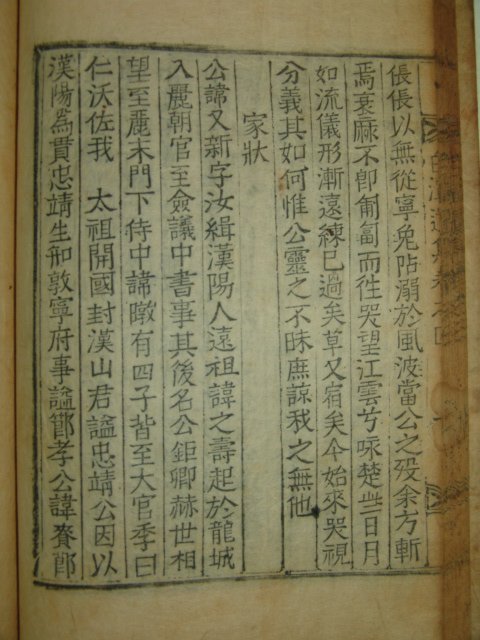 倀倀以無從寧免阽溺於風波當公之歿余方斬
焉衰麻不卽匍匐而徃哭望江雲兮咏楚些日月
如流儀形漸遠練已過矣草又宿矣今始來哭視
分義其如何惟公靈之不昧庶諒我之無他
家狀
公諱又新字汝緝漢陽人遠祖諱之壽起於龍城
入麗朝官至僉議中書事其後名公鉅卿赫世相
望至麗末門下侍中諱暾有四子皆至大官季曰
仁沃佐我 太祖開國封漢山君謚忠靖公因以
漢陽爲貫忠靖生知敦寧府事謚孝公諱賚